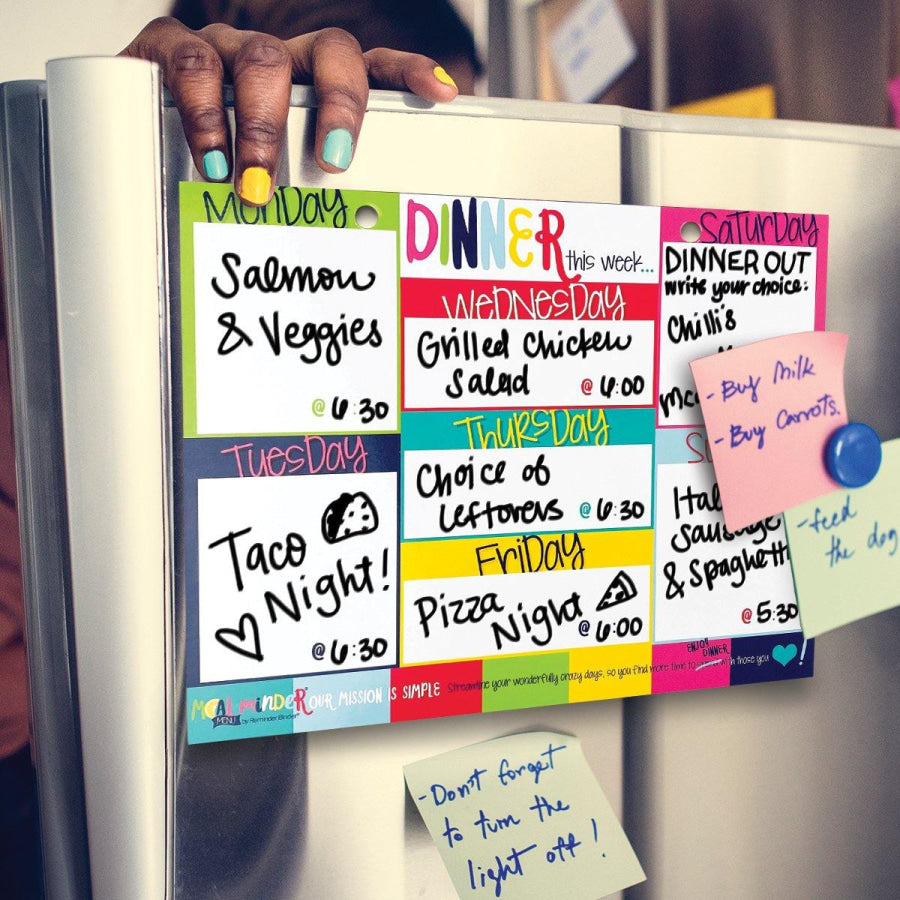 MONDAY
Salmon
& Veggies
@ 6:30
TUESDAY
Taco
Night!
@ 6:30
DINNER
this week...
WEDNESDAY
Grilled Chicken
Salad @ 6:00
THURSDAY
Choice of
Leftovers @ 6:30
FRIDAY
Pizza
Night @ 6:00
SATURDAY
DINNER OUT
write your choice:
Chilli's
Sausage
& Spaghetti
@ 5:30
MEAL MINDER
MENU by ReminderBinder®
OUR MISSION IS SIMPLE
Streamline your wonderfully crazy days, so you find more time to
ENJOY
DINNER
with those you
!
- Buy Milk
- Buy Carrots.
- feed
the dog
- Don't forget
to turn the
light off!